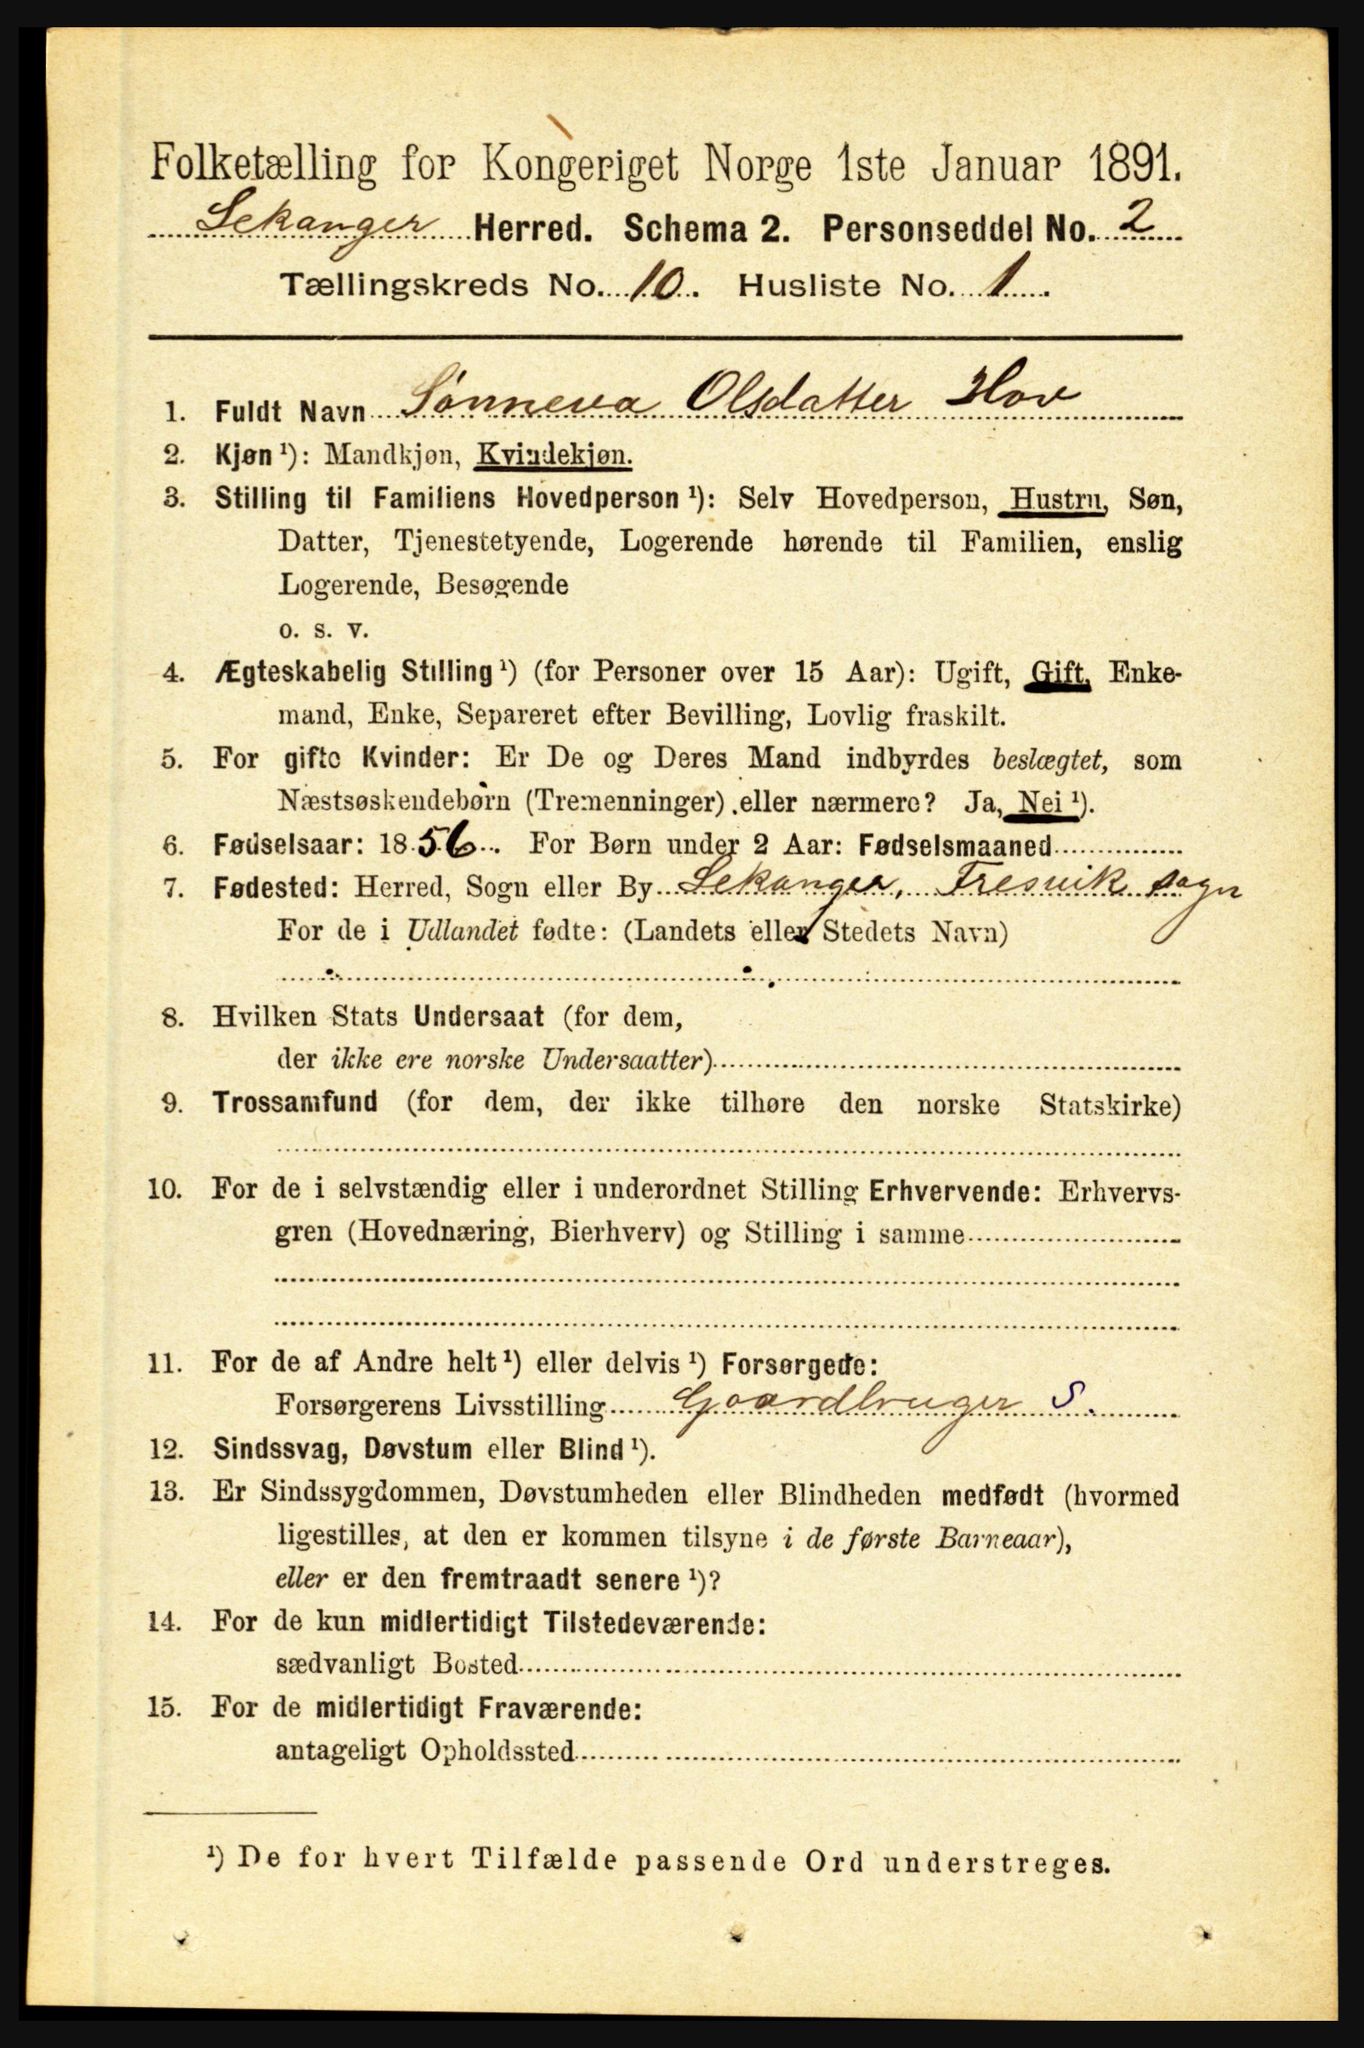 Folketælling for Kongeriget Norge 1ste Januar 1891.
Lekanger Herred. Schema 2. Personseddel No. 2
Tællingskreds No. 10. Husliste No. 1.
1. Fuldt Navn Sønneva Olsdatter Hov
2. Kjøn ¹): Mandkjøn, Kvindekjøn.
3. Stilling til Familiens Hovedperson ¹): Selv Hovedperson, Hustru, Søn,
Datter, Tjenestetyende, Logerende hørende til Familien, enslig
Logerende, Besøgende
o. s. v.
4. Ægteskabelig Stilling ¹) (for Personer over 15 Aar): Ugift, Gift, Enke-
mand, Enke, Separeret efter Bevilling, Lovlig fraskilt.
5. For gifte Kvinder: Er De og Deres Mand indbyrdes beslægtet, som
Næstsøskendebørn (Tremenninger) eller nærmere? Ja, Nei ¹).
6. Fødselsaar: 1856. For Børn under 2 Aar: Fødselsmaaned
7. Fødested: Herred, Sogn eller By Lekanger, Fresvik sogn
For de i Udlandet fødte: (Landets eller Stedets Navn)
8. Hvilken Stats Undersaat (for dem,
der ikke ere norske Undersaatter)
9. Trossamfund (for dem, der ikke tilhøre den norske Statskirke)
10. For de i selvstændig eller i underordnet Stilling Erhvervende: Erhvervs-
gren (Hovednæring, Bierhverv) og Stilling i samme
11. For de af Andre helt ¹) eller delvis ¹) Forsørgede:
Forsørgerens Livsstilling Gaardbruger S.
12. Sindssvag, Døvstum eller Blind ¹).
13. Er Sindssygdommen, Døvstumheden eller Blindheden medfødt (hvormed
ligestilles, at den er kommen tilsyne i de første Barneaar),
eller er den fremtraadt senere ¹)?
14. For de kun midlertidigt Tilstedeværende:
sædvanligt Bosted
15. For de midlertidigt Fraværende:
antageligt Opholdssted
¹) De for hvert Tilfælde passende Ord understreges.